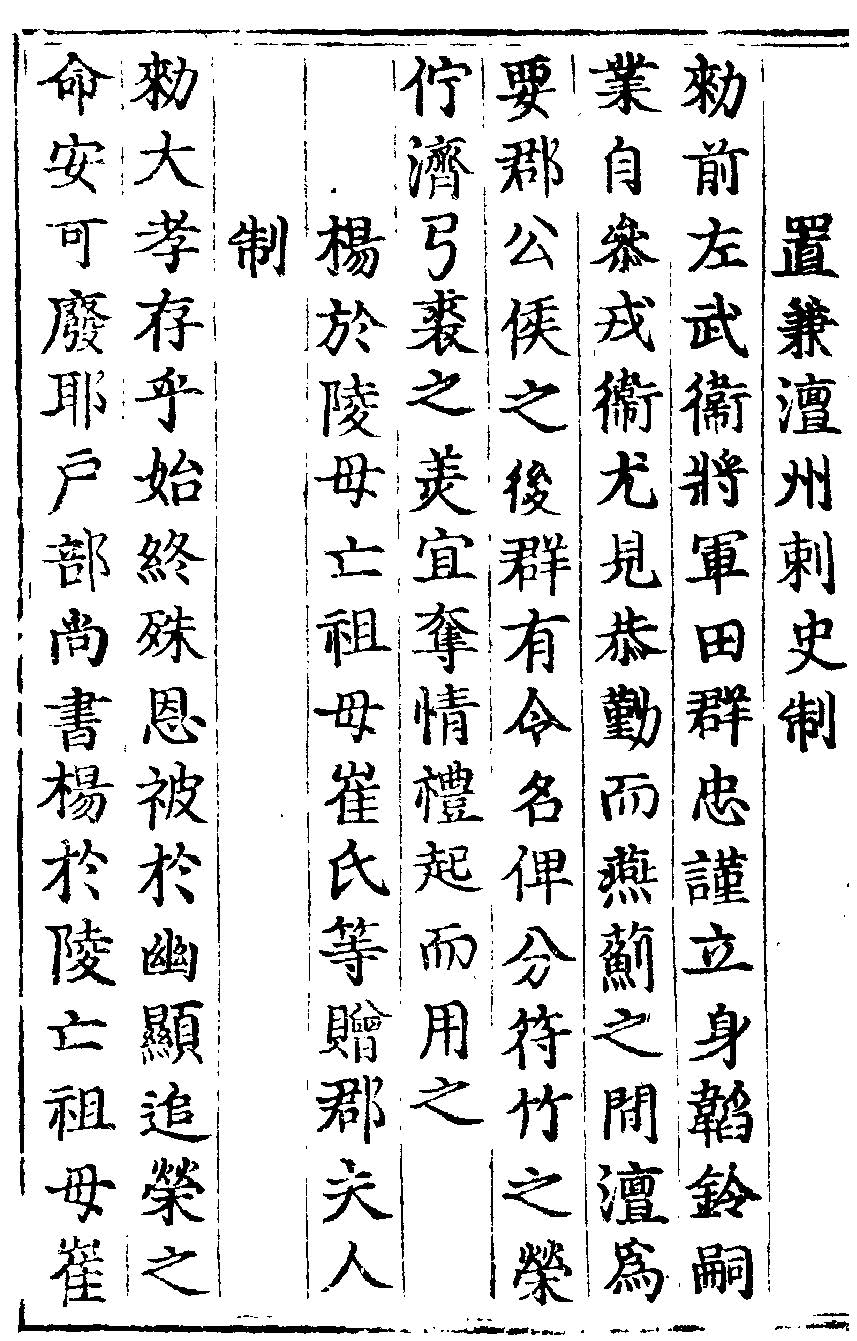 置兼澶州刺史制
勑前左武衞將軍田群忠謹立身韜鈐嗣
業自參戎衞尤見恭勤而燕薊之間澶爲
要郡公侯之後群有令名俾分符竹之榮
佇濟弓裘之美宜奪情禮起而用之
楊於陵母亡祖母崔氏等贈郡夫人
制
勑大孝存乎始終殊恩被於幽顯追榮之
命安可廢耶戸部尚書楊於陵亡祖母崔